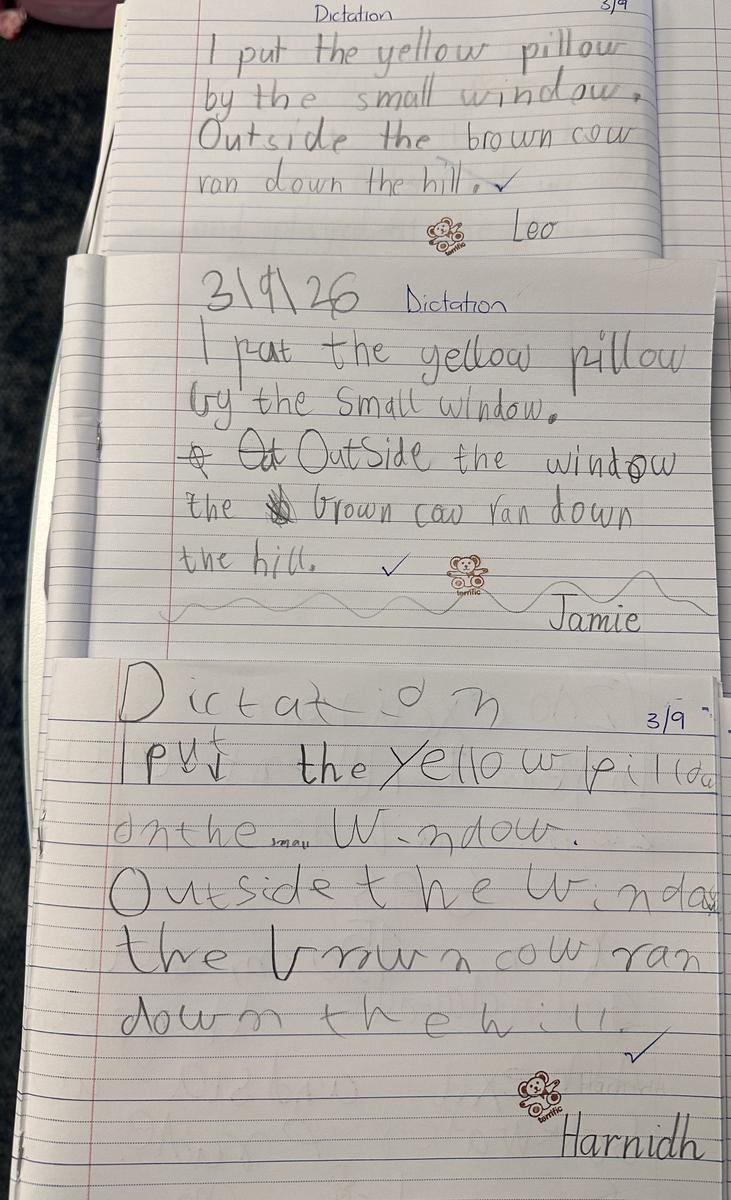 Dictation 3/9
I put the yellow pillow
by the small window.
Outside the brown cow
ran down the hill. ✓
terrific
Leo
3\9\26 Dictation
I put the yellow pillow
by the small window.
Outside the window
the brown cow ran down
the hill. ✓
terrific
Jamie
Dictation 3/9
I put the yellow pillow
on the small window.
Outside the window
the brown cow ran
down the hill.
✓
terrific
Harnidh